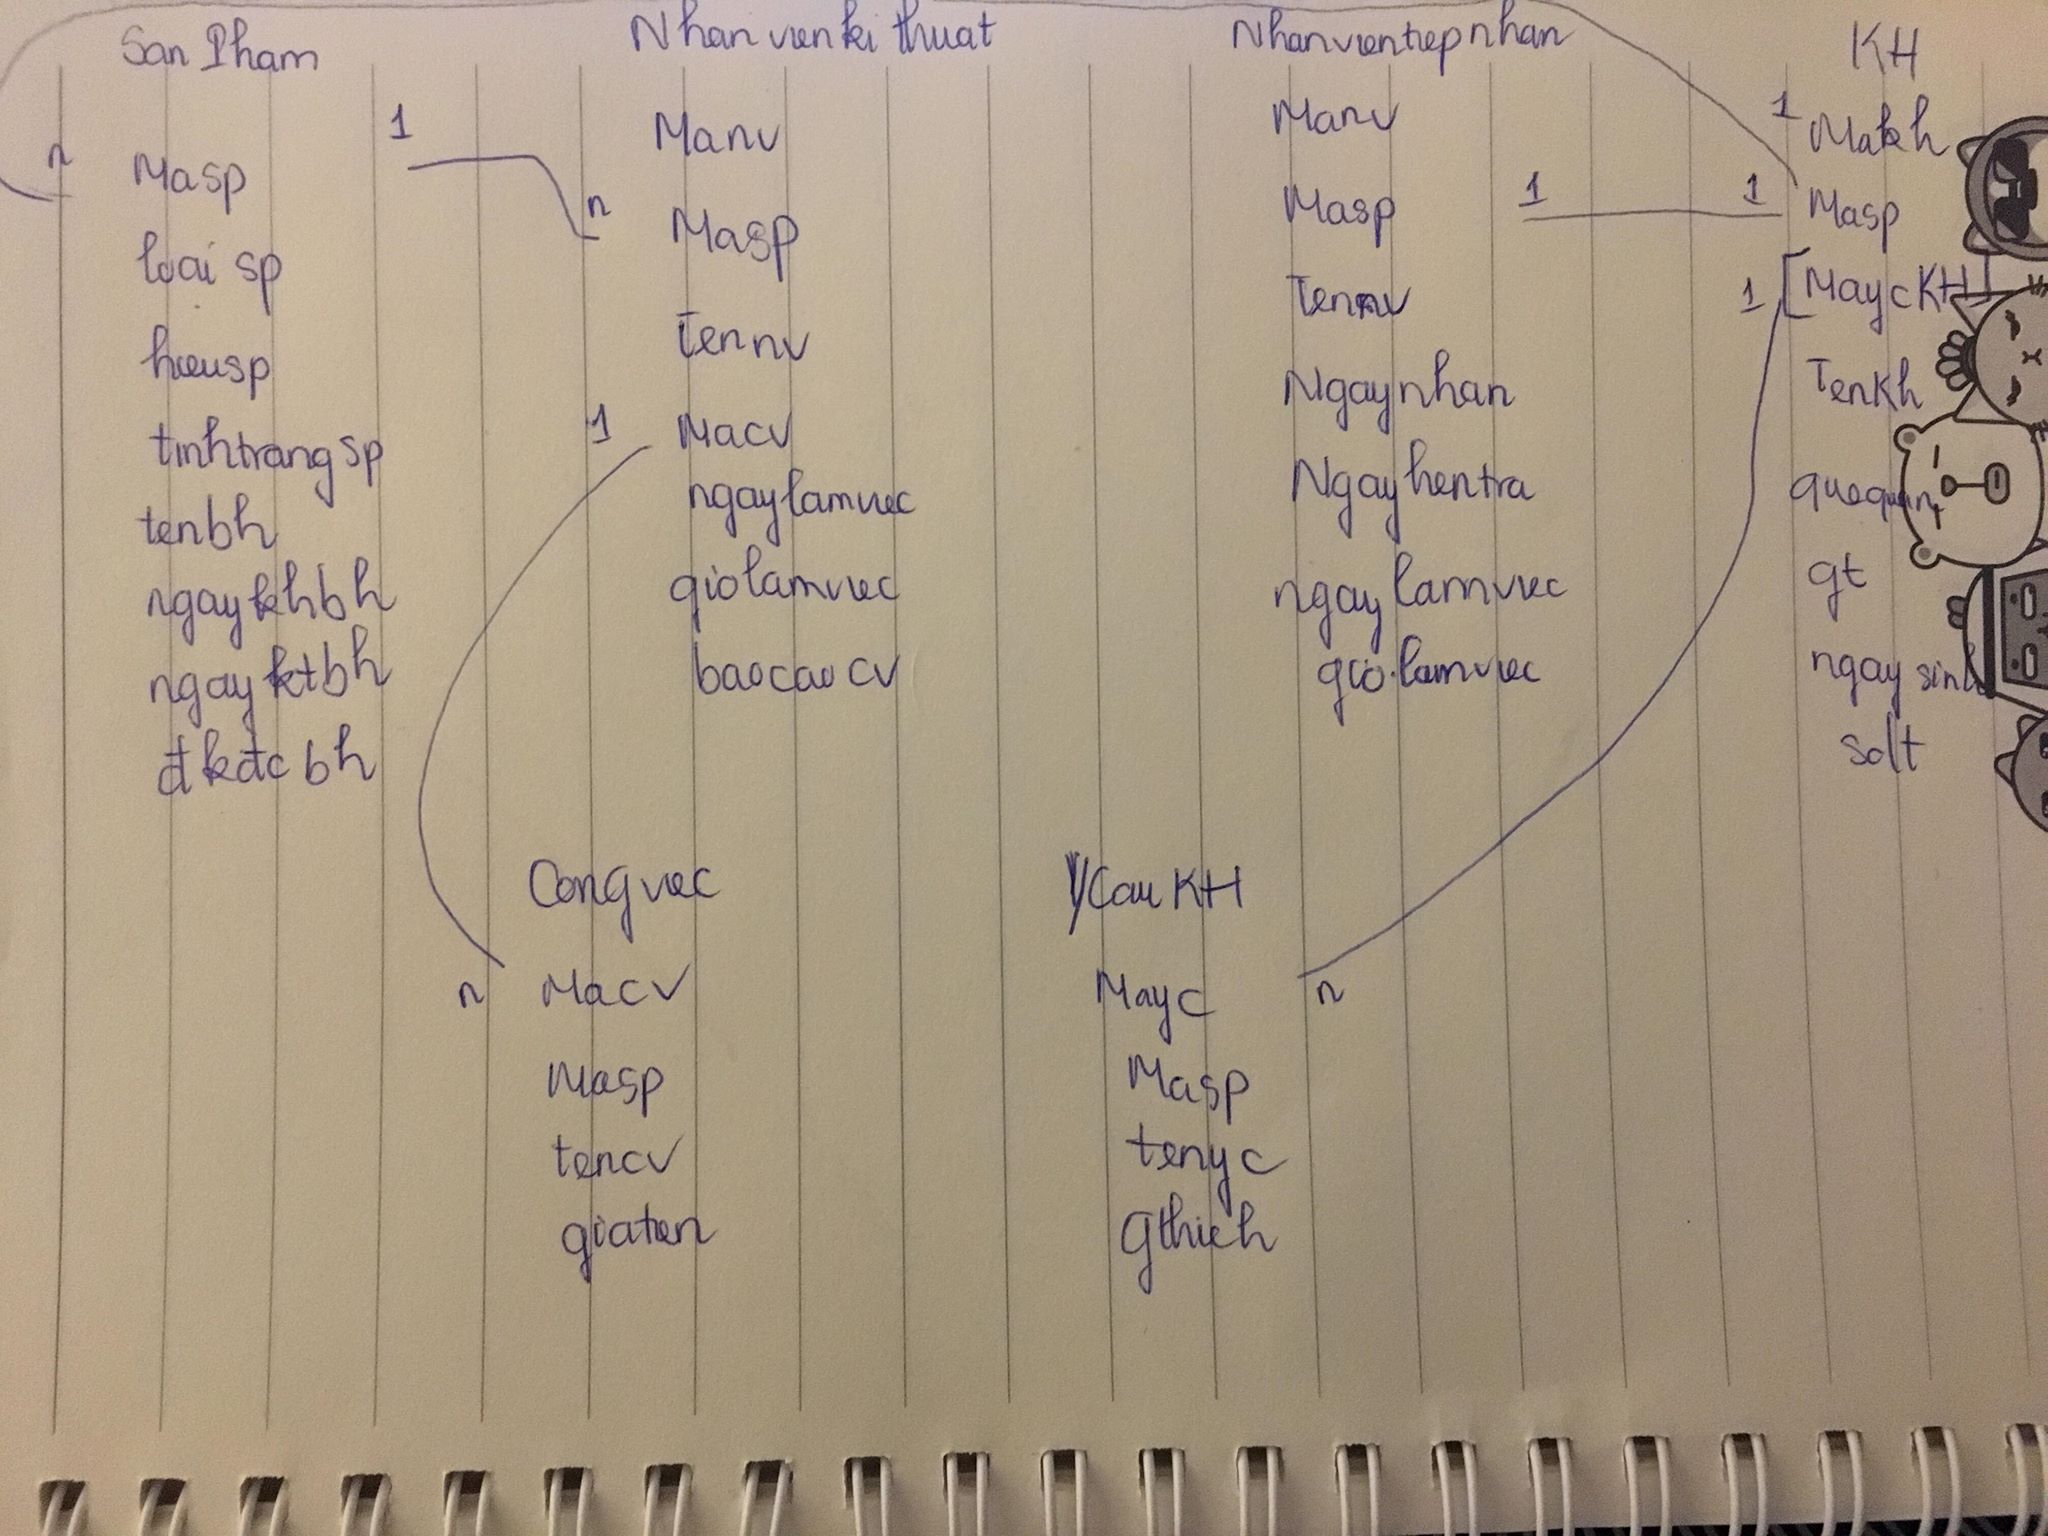 San Pham
n
1
Masp
loai sp
hieusp
tinhtrangsp
tenbh
ngaykhbh
ngayktbh
đkđcbh
Nhanvienki thuat
Manv
n
Masp
Tennv
1
Macv
ngaylamviec
giolamviec
baocaocv
Nhanvientiepnhan
Manv
Masp
1
Tennv
Ngaynhan
Ngayhentra
ngaylamviec
giolamviec
KH
1
Makh
1
Masp
1
[MaycKH]
TenKh
quequan
gt
ngaysinh
sdt
Congviec
n
Macv
Masp
tencv
giatien
YCauKH
Mayc
n
Masp
tenyc
Gthich